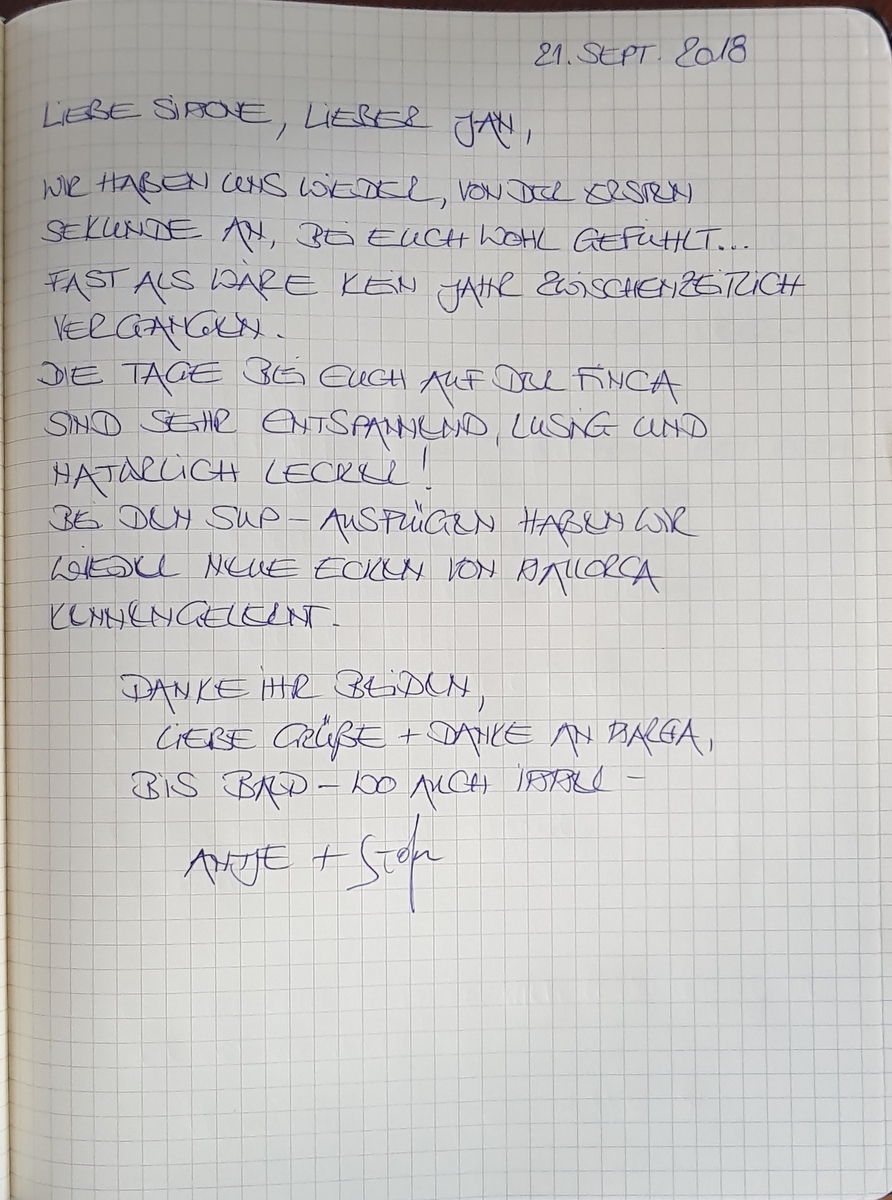 21. SEPT. 2018
LIEBE SIMONE, LIEBER JAN,
WIR HABEN UNS WIEDER, VON DER ERSTEN
SEKUNDE AN, BEI EUCH WOHL GEFÜHLT...
FAST ALS WÄRE KEIN JAHR ZWISCHENZEITLICH
VERGANGEN.
DIE TAGE BEI EUCH AUF DER FINCA
SIND SEHR ENTSPANNEND, LUSTIG UND
NATÜRLICH LECKER!
BEI DEN SUP - AUSFLÜGEN HABEN WIR
WIEDER NEUE ECKEN VON MALLORCA
KENNENGELERNT.
DANKE IHR BEIDEN,
LIEBE GRÜßE + DANKE AN MARGA,
BIS BALD - WO AUCH IMMER -
ANTJE +